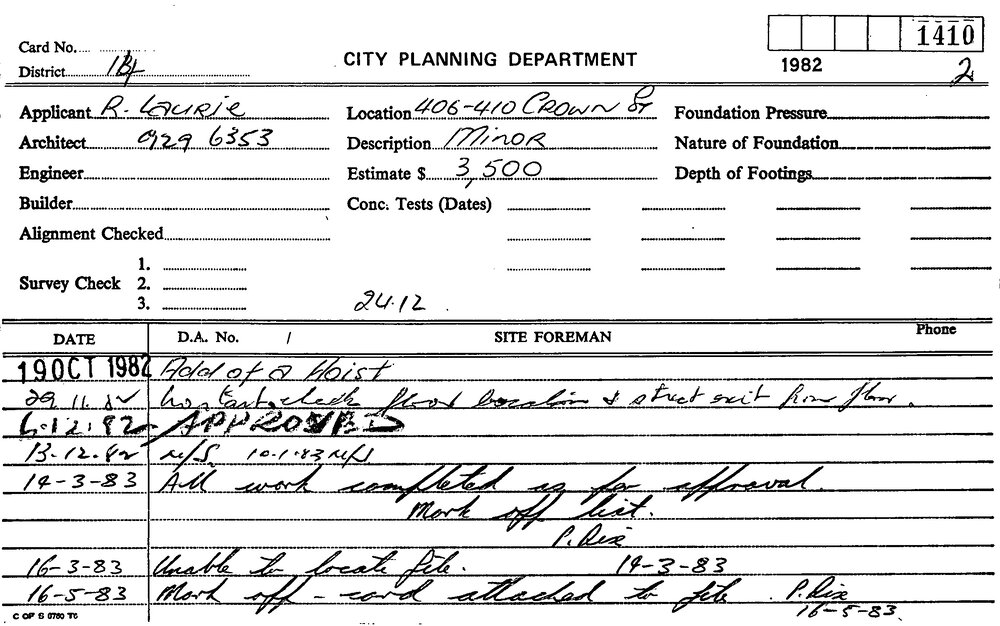 1410
Card No.
CITY PLANNING DEPARTMENT
1982 2
District
Applicant R. LAURIE Location 406-410 CROWN ST Foundation Pressure
Architect 929 6353 Description MINOR Nature of Foundation
Engineer Estimate $ 3,500 Depth of Footings
Builder Conc. Tests (Dates)
Alignment Checked
1.
Survey Check 2.
3. 24.12.
DATE D.A. No. / SITE FOREMAN Phone
19 OCT 1982 Add of a Hoist
29.11.82 check floor location & street exit from floor.
6.12.82 APPROVED
13.12.82 N/S. 10.1.83 N/S
14-3-83 All work completed as for approval.
Mark off list.
P. Rix
16-3-83 Unable to locate file. 14-3-83
16-5-83 Mark off - card attached to file P. Rix
16-5-83.
C OF S 0780 TC